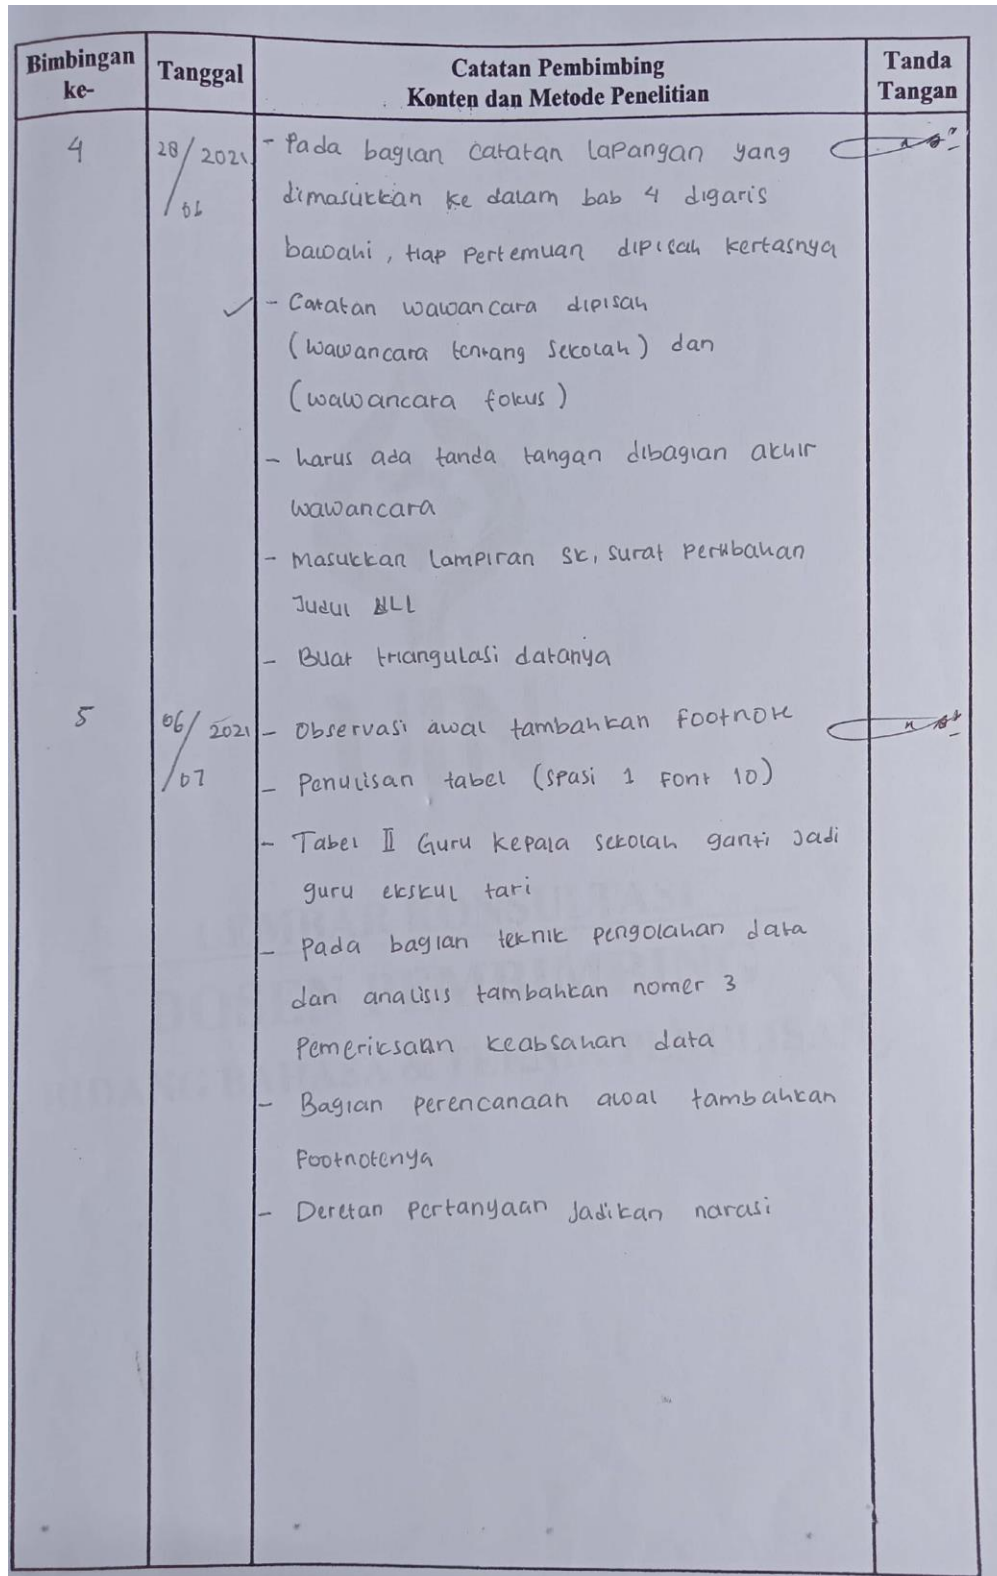 Bimbingan ke-
Tanggal
Catatan Pembimbing
Konten dan Metode Penelitian
Tanda Tangan
4
28/06 2021
- Pada bagian catatan lapangan yang
dimasukkan ke dalam bab 4 digaris
bawahi, tiap pertemuan dipisah kertasnya
- Catatan wawancara dipisah
(wawancara tentang sekolah) dan
(wawancara fokus)
- harus ada tanda tangan dibagian akhir
wawancara
- Masukkan lampiran SK, surat perubahan
Judul DLL
- Buat triangulasi datanya
5
06/07 2021
- Observasi awal tambahkan footnote
- Penulisan tabel (spasi 1 font 10)
- Tabel II Guru kepala sekolah ganti jadi
guru ekskul tari
- Pada bagian teknik pengolahan data
dan analisis tambahkan nomer 3
Pemeriksaan keabsahan data
- Bagian perencanaan awal tambahkan
Footnotenya
- Deretan pertanyaan Jadikan narasi